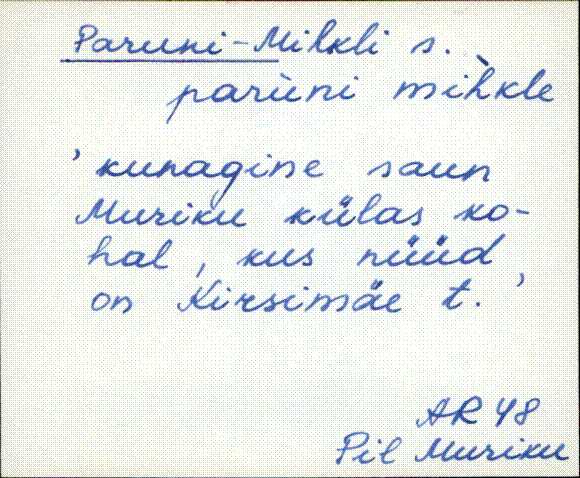 Paruni-Mihkli s.
parùni mìhkle
'kunagine saun
Muriku külas ko-
hal, kus nüüd
on Kirsimäe t.'
AR 48
Pil Muriku